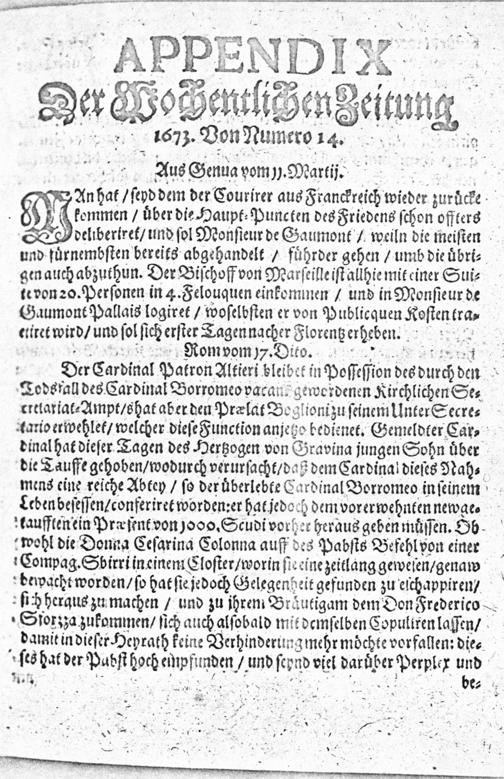 APPENDIX
Der Wochentlichen Zeitung
1673. Von Numero 14.
Aus Genua vom 11. Martij.
MAn hat / seyd dem der Courirer aus Franckreich wieder zurücke
kommen / über die Haupt-Puncten des Friedens schon offters
deliberiret / und sol Monsieur de Gaumont / weiln die meisten
und fürnembsten bereits abgehandelt / führder gehen / umb die übri-
gen auch abzuthun. Der Bischoff von Marseille ist allhie mit einer Sui-
te von 20. Personen in 4. Felouquen einkommen / und in Monsieur de
Gaumont Pallais logiret / woselbsten er von Publicquen Kosten tra-
ctiret wird / und sol sich erster Tagen nacher Florentz erheben.
Rom vom 17. Dito.
Der Cardinal Patron Altieri bleibet in Possession des durch den
Todsfall des Cardinal Borromeo vacant gewordenen Kirchlichen Se-
cretariat-Ampts / hat aber den Prælat Boglioni zu seinem Unter Secre-
tario erwehlet / welcher diese Function anjetzo bedienet. Gemeldter Car-
dinal hat dieser Tagen des Hertzogen von Gravina jungen Sohn über
die Tauffe gehoben / wodurch verursacht / daß dem Cardinal dieses Nah-
mens eine reiche Abtey / so der überlebte Cardinal Borromeo in seinem
Leben besessen / conferiret worden: er hat jedoch dem vorerwehnten newge-
taufften ein Præsent von 3000. Scudi vorher heraus geben müssen. Ob-
wohl die Donna Cesarina Colonna auff des Pabsts Befehl von einer
Compag. Sbirri in einem Closter / worin sie eine zeitlang gewesen / genaw
bewacht worden / so hat sie jedoch Gelegenheit gefunden zu echappiren /
sich heraus zu machen / und zu ihrem Bräutigam dem Don Frederico
Sforzza zukommen / sich auch alsobald mit demselben Copuliren lassen /
damit in dieser Heyrath keine Verhinderung mehr möchte vorfallen: die-
ses hat der Pabst hoch empfunden / und seynd viel darüber Perplex und
be-